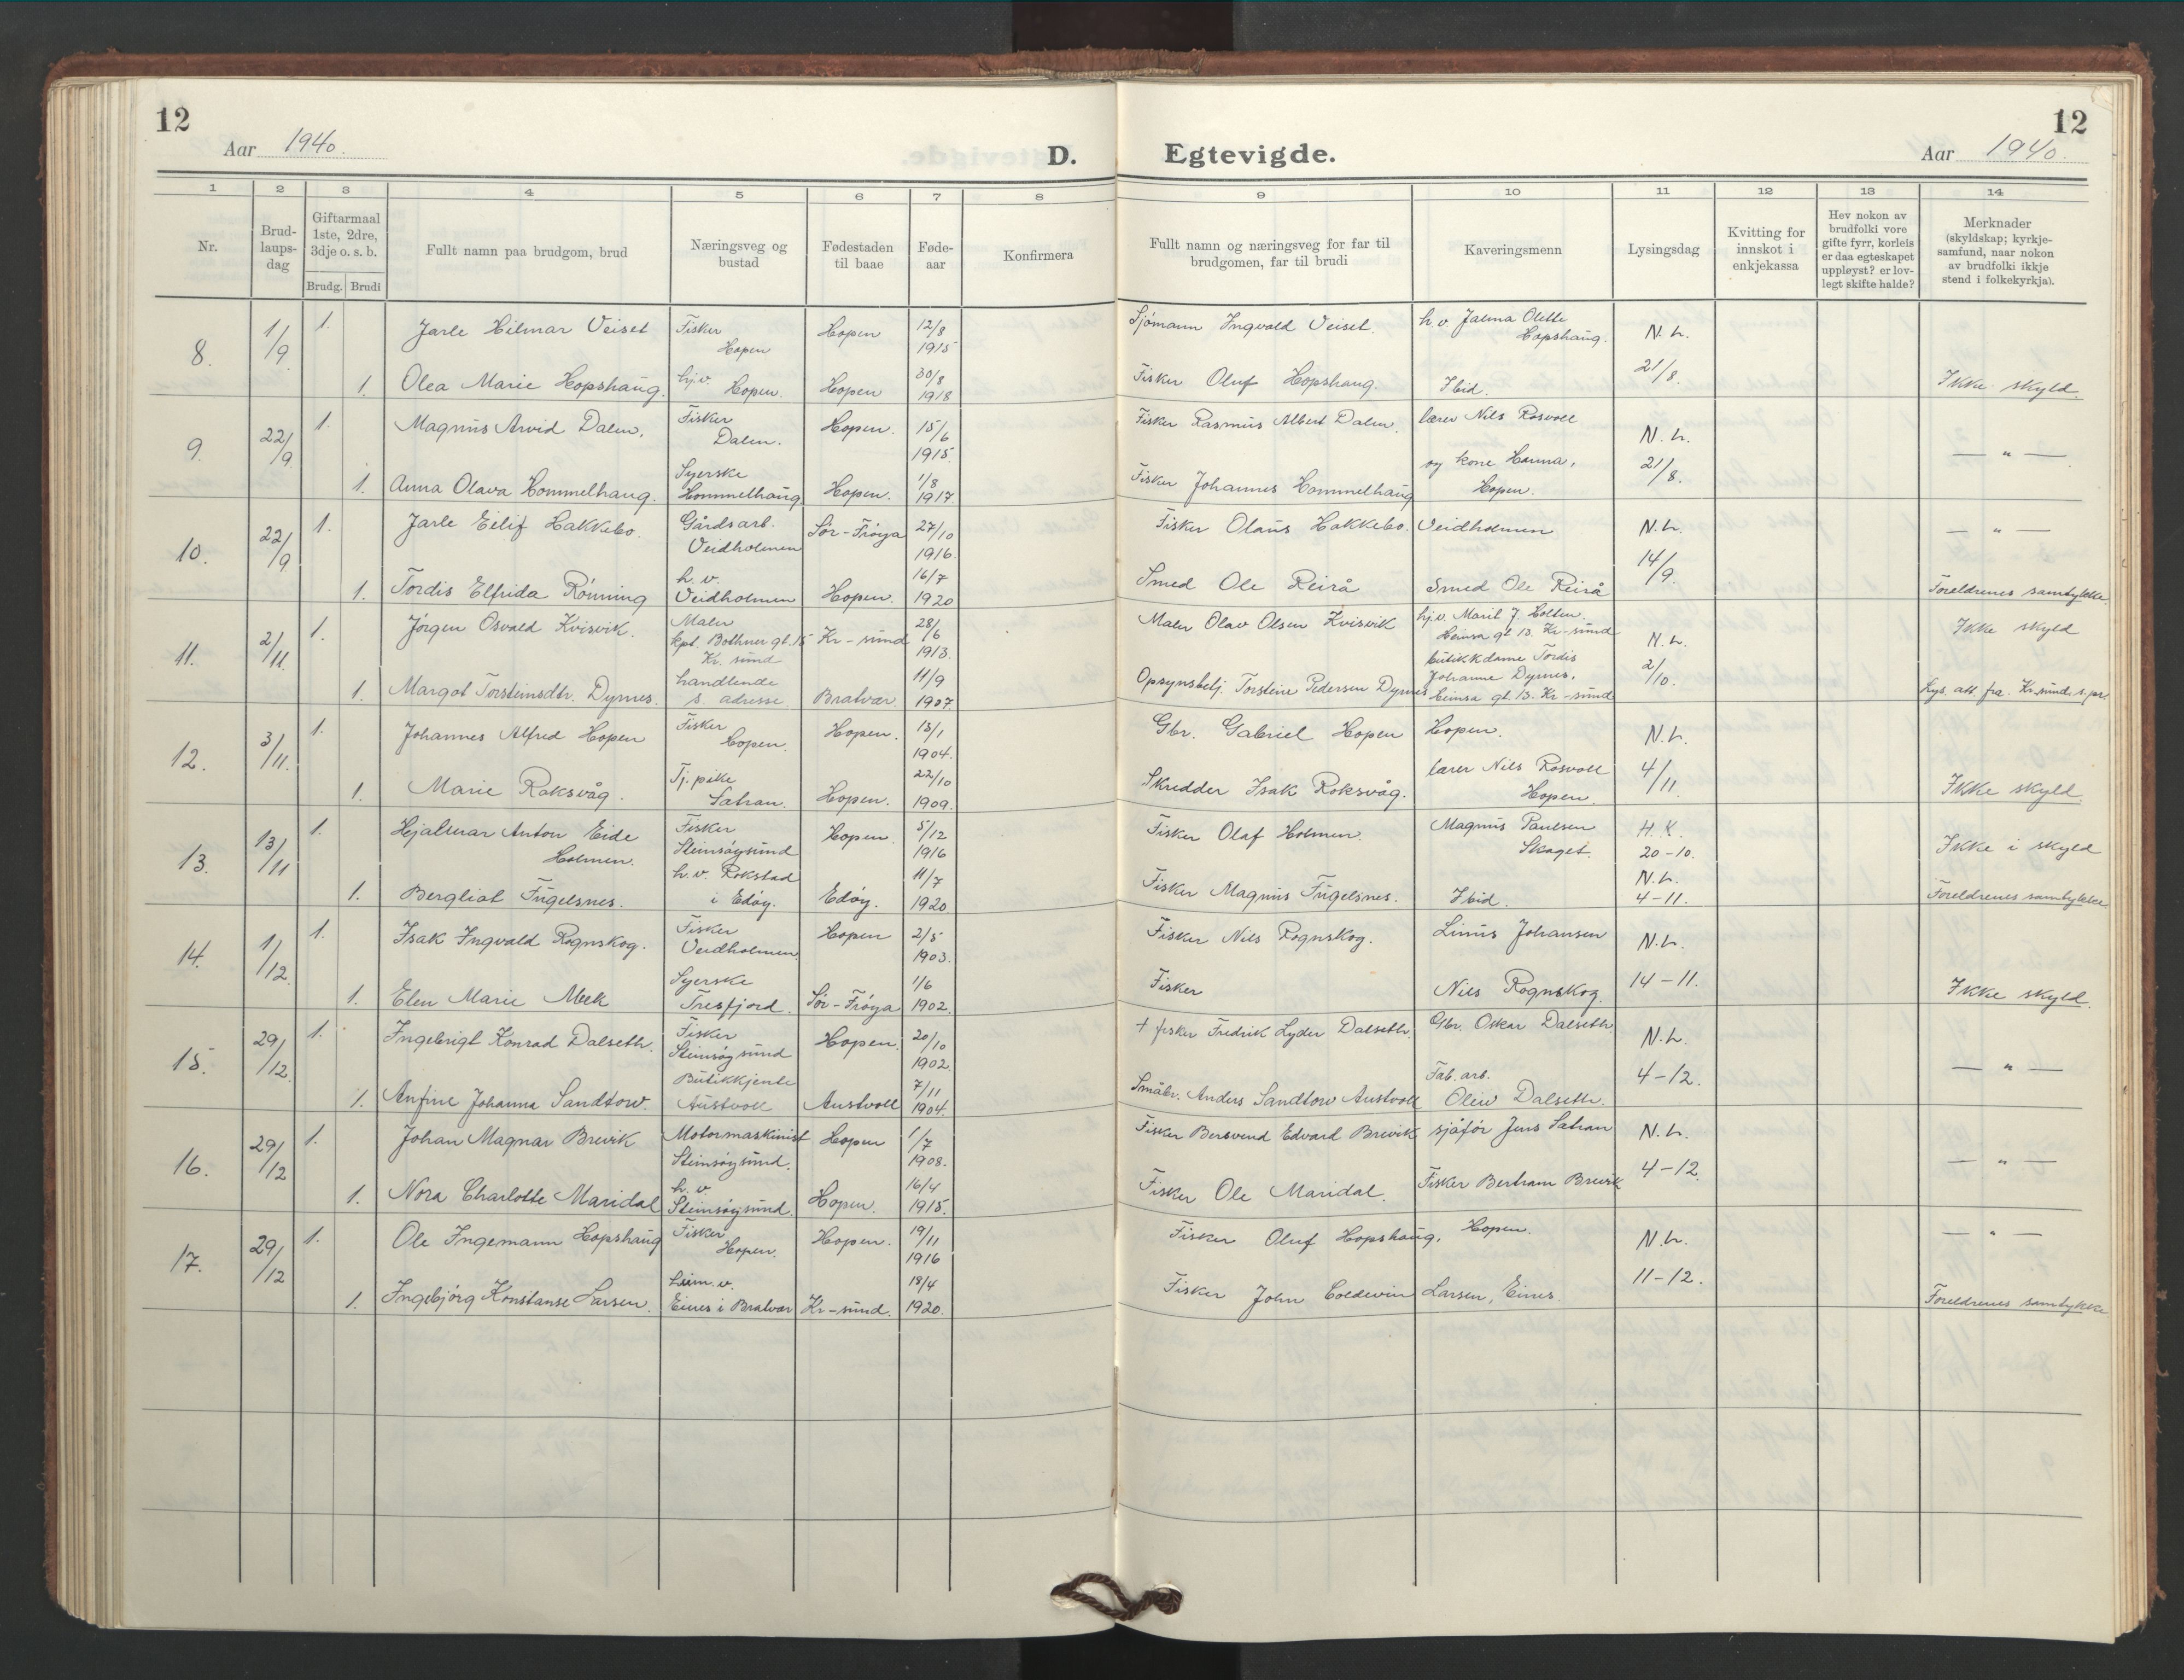 12
Aar 1940.
D. Egtevigde.
12
Aar 1940.
1 2 3 4 5 6 7 8 9 10 11 12 13 14
Nr.
Brud-
laups-
dag
Giftarmaal
1ste, 2dre,
3dje o. s. b.
Brudg. Brudi
Fullt namn paa brudgom, brud
Næringsveg og
bustad
Fødestaden
til baae
Føde-
aar
Konfirmera
Fullt namn og næringsveg for far til
brudgomen, far til brudi
Kaveringsmenn
Lysingsdag
Kvitting for
innskot i
enkjekassa
Hev nokon av
brudfolki vore
gifte fyrr, korleis
er daa egteskapet
uppløyst? er lov-
legt skifte halde?
Merknader
(skyldskap; kyrkje-
samfund, naar nokon
av brudfolki ikkje
stend i folkekyrkja).
8. 1/9 1. Jarle Hilmar Veiset Fisker Hopen Hopen 12/8 1915 Sjömann Ingvald Veiset. h.v. Jalma Olette Hopshaug. N. L.
1. Olea Marie Hopshaug. hj.v. Hopen. Hopen 30/8 1918 Fisker Oluf Hopshaug. Ibid. 21/8. Ikke skyld.
9. 22/9 1. Magnus Arvid Dalen. Fisker Dalen. Hopen. 15/6 1915. Fisker Rasmus Albert Dalen. lærer Nils Rosvoll N. L. — " —
1. Anna Olava Hommelhaug. Syerske Hommelhaug Hopen. 1/8 1917. Fisker Johannes Hommelhaug og kone Hanna, Hopen. 21/8.
10. 22/9 1. Jarle Eilif Hakkebo. Gårdsarb. Veidholmen Sör-Fröya 27/10 1916. Fisker Olaus Hakkebo. Veidholmen N. L. — " —
1. Tordis Elfrida Rönning h. v. Veidholmen Hopen. 16/7 1920 Smed Ole Reirå Smed Ole Reirå 14/9. Foreldrenes samtykke.
11. 2/11. 1. Jörgen Osvald Kvisvik. Maler kpt. Bothner gt. 15 Kr. sund Kr-sund 28/6 1913. Maler Olav Olsen Kvisvik hj.v. Marit J. Holten. Heinsa gt 13. Kr-sund N. L. Ikke skyld
1. Margot Torsteinsdtr. Dyrnes. handlende s. adresse. Bratvær 11/9 1907. Opsynsbetj. Torsteine Pedersen Dyrnes butikkdame Tordis Johanne Dyrnes, Heinsa gt 13. Kr-sund 2/10. Lys. att. fra Kr.sund s.pr.
12. 3/11. 1. Johannes Alfred Hopen Fisker Hopen. Hopen. 13/1 1904. Gbr. Gabriel Hopen Hopen. N. L.
1. Marie Roksvåg. Tj.pike Satran. Hopen. 22/10 1909. Skredder Isak Roksvåg. lærer Nils Rosvoll Hopen. 4/11. Ikke skyld.
13. 13/11 1. Hjalmar Anton Eide Holmen. Fisker Steinsöysund Hopen. 5/12 1916 Fisker Olaf Holmen. Magnus Paulsen Skaget. H. K. 20-10. Ikke i skyld
1. Bergliot Fugelsnes. h. v. Rokstad i Edöy. Edöy. 11/7 1920 Fisker Magnus Fugelsnes. Ibid. N. L. 4-11. Foreldrenes samtykke.
14. 1/12. 1. Isak Ingvald Rognskog. Fisker Veidholmen. Hopen 2/5 1903. Fisker Nils Rognskog. Linus Johansen N. L.
1. Elen Marie Meek Syerske Tresfjord. Sör-Fröya 1/6 1902. Fisker Nils Rognskog. 14-11. Ikke skyld.
15. 29/12. 1. Ingebrigt Konrad Dalseth. Fisker Steinsöysund Hopen. 20/10 1902. † fisker Fredrik Lyder Dalseth. Gbr. Oskar Dalseth N. L. — " —
1. Anfine Johanna Sandtorv. Butikkjente Austvoll Austvoll 7/11 1904. Småbr. Anders Sandtorv Austvoll Fab. arb. Oleiv Dalseth. 4-12.
16. 29/12 1. Johan Magnar Brevik Motormaskinist Steinsöysund. Hopen 1/7 1908. Fisker Bersvend Edvard Brevik sjåför Jens Satran N. L. — " —
1. Nora Charlotte Maridal h. v. Steinsöysund. Hopen. 16/4 1915. Fisker Ole Maridal. Fisker Bertram Brevik 4-12.
17. 29/12 1. Ole Ingemann Hopshaug Fisker Hopen. Hopen. 19/11 1916 Fisker Oluf Hopshaug, Hopen. N. L. — " —
1. Ingebjörg Konstanse Larsen. heim. v. Eines i Bratvær Kr-sund. 18/4 1920. Fisker John Coldevin Larsen, Eines. 11-12. Foreldrenes samtykke